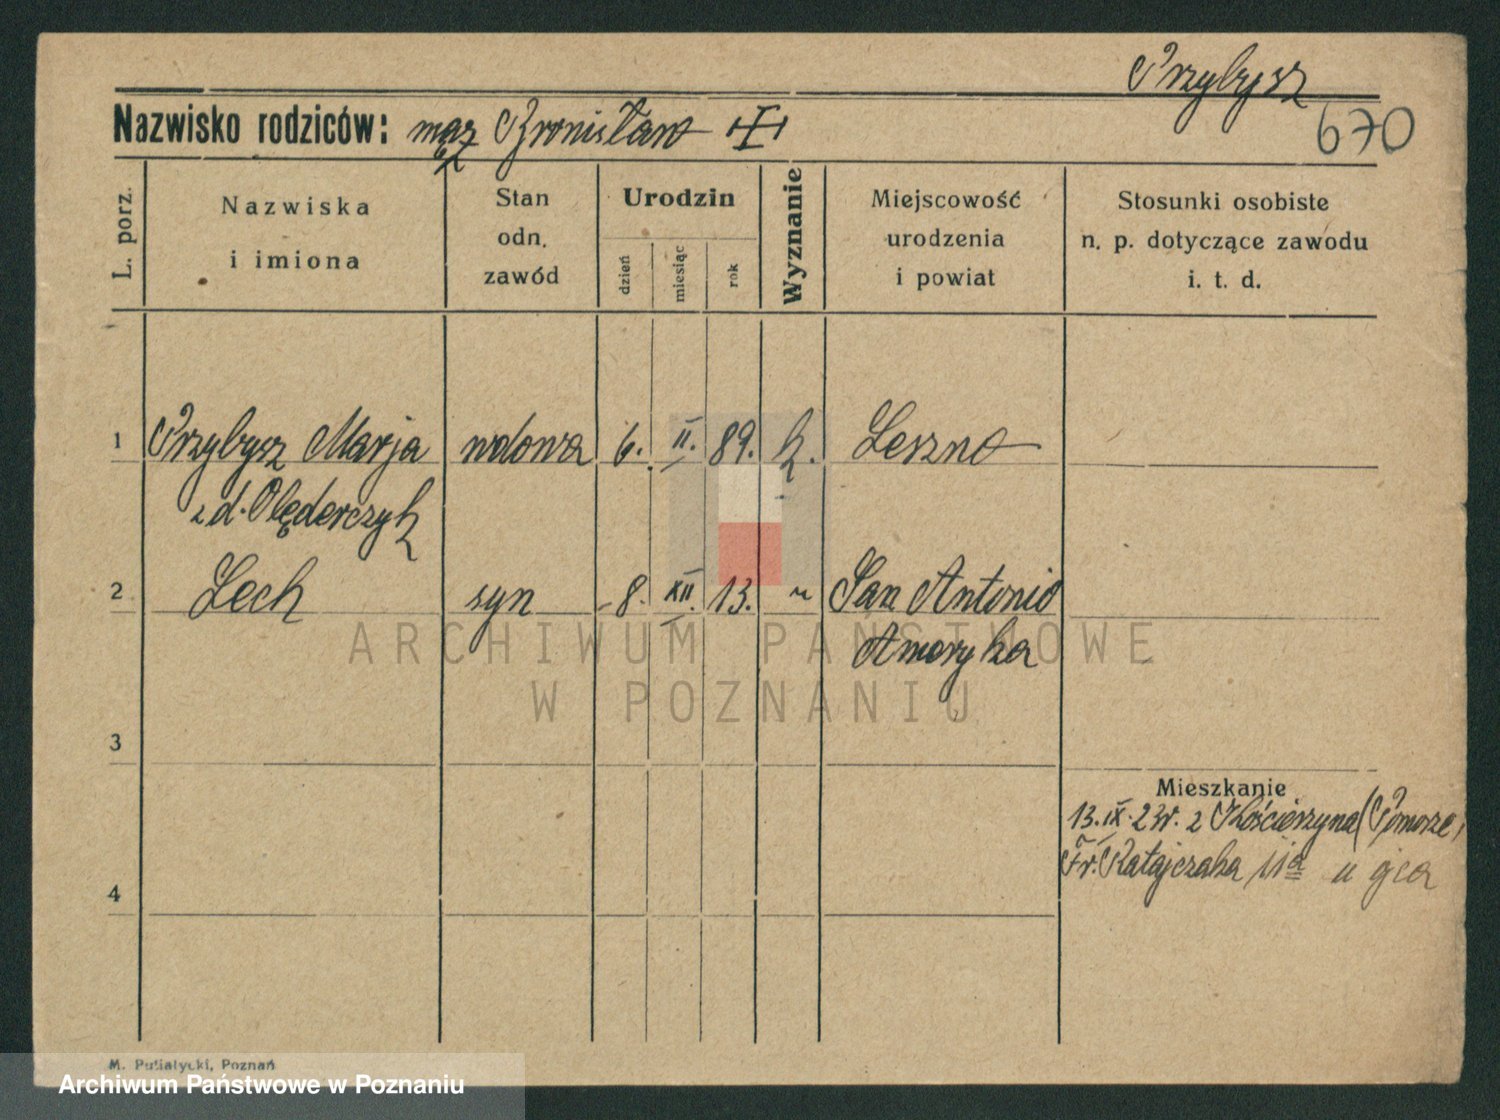 Przybysz
Nazwisko rodziców: mąż Bronisław
670
L. porz.
Nazwiska
i imiona
Stan
odn.
zawód
Urodzin
dzień
miesiąc
rok
Wyznanie
Miejscowość
urodzenia
i powiat
Stosunki osobiste
n. p. dotyczące zawodu
i. t. d.
1 Przybysz Marja wdowa 6. II. 89. k. Leszno
z d. Olęderczyk
2 Lech syn 8. XII. 13. " San Antonio
Ameryka
ARCHIWUM PAŃSTWOWE
W POZNANIU
3
Mieszkanie
13. IX. 23r. z Kościerzyna (Pomorze)
Fr. Ratajczaka 11a u
4
M. Putiatycki, Poznań
Archiwum Państwowe w Poznaniu